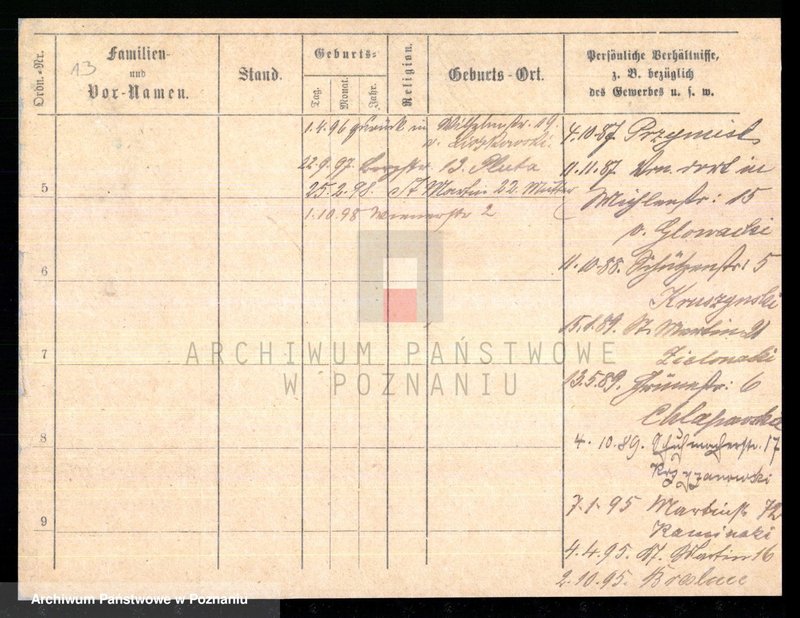 13
Ordn.-Nr.
Familien-
und
Vor-Namen.
Stand.
Geburts-
Tag.
Monat.
Jahr.
Religion.
Geburts-Ort.
Persönliche Verhältnisse,
z. B. bezüglich
des Gewerbes u. s. w.
1.4.96 zurück in Wilhelmstr. 19
v.
22.9.97. Bergstr. 13. Pluta
25.2.98. St Martin 22. Mutter
1.10.98 Wienerstr 2
4.10.87. Przymisl
11.11.87. von dort in
Mühlenstr: 15
v. Glowacki
11.10.88. Schützenstr: 5
Kruszynski
15.1.89. St. Martin 21
Zielonacki
13.5.89. Grünestr: 6
4.10.89. Schuhmacherstr. 17
Krzyzanowski
7.1.95 Martinstr. 72
Kaminski
4.4.95. St. Martin 16
2.10.95. Breslau
5
6
7
8
9
ARCHIWUM PAŃSTWOWE
W POZNANIU
Archiwum Państwowe w Poznaniu